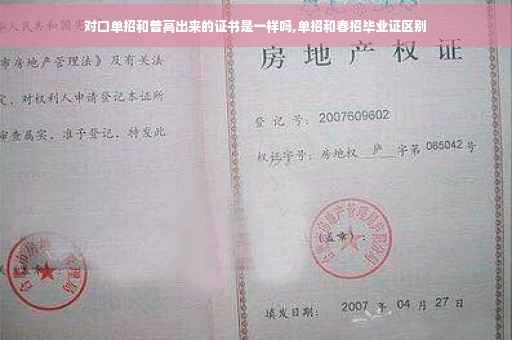 对口单招和普高出来的证书是一样吗,单招和春招毕业证区别
人民共和国宪
市房地产管理法》及有关法
定，对权利人申请登记本证所
审查属实，准予登记，特发此
房地产权证
登记号：2007609602
权证字号：房地权 庐 字第 085042 号
(盖章)：
填发日期： 2007 年 04 月 27 日